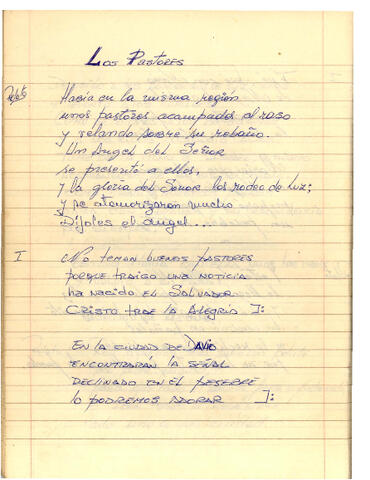 Los Pastores
Relato
Había en la misma región
unos pastores acampados al raso
y velando sobre su rebaño.
Un Angel del Señor
se presentó a ellos,
y la gloria del Señor los rodeo de luz;
y se atemorizaron mucho
Díjoles el angel...
I
No teman buenos pastores
porque traigo una noticia
ha nacido el Salvador
Cristo trae la Alegria ]:
En la ciudad de David
encontrarán la señal
reclinado en el pesebre
lo podremos adorar ]: